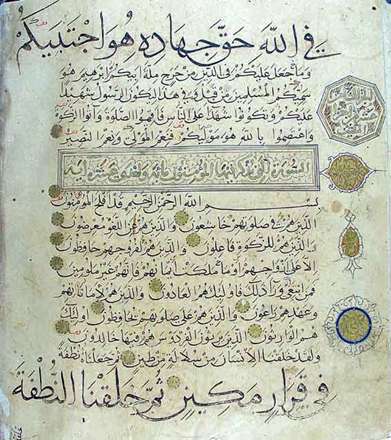 في الله حق جهاده هو اجتبيكم
وما جعل عليكم في الدين من حرج ملة ابيكم ابرهيم هو
سميكم المسلمين من قبل وفي هذا ليكون الرسول شهيدا
عليكم وتكونوا شهدا على الناس فاقيموا الصلوة واتوا الزكوة
واعتصموا بالله هو موليكم فنعم المولى ونعم النصير
السورة التي يذكر فيها المؤمنون مائة عشرة اية
بسم الله الرحمن الرحيم قد افلح المؤمنون
الذين هم في صلوتهم خاشعون والذين هم عن اللغو معرضون
والذين هم للزكوة فاعلون والذين هم لفروجهم حافظون
الا على ازواجهم او ما ملكت ايمانهم فانهم غير ملومين
فمن ابتغى ورا ذلك فاوليك هم العادون والذين هم لاماناتهم
وعهدهم راعون والذين هم على صلوتهم يحافظون اوليك
هم الوارثون الذين يرثون الفردوس هم فيها خالدون
ولقد خلقنا الانسان من سلالة من طين ثم جعلناه نطفة
في قرار مكين ثم خلقنا النطفة